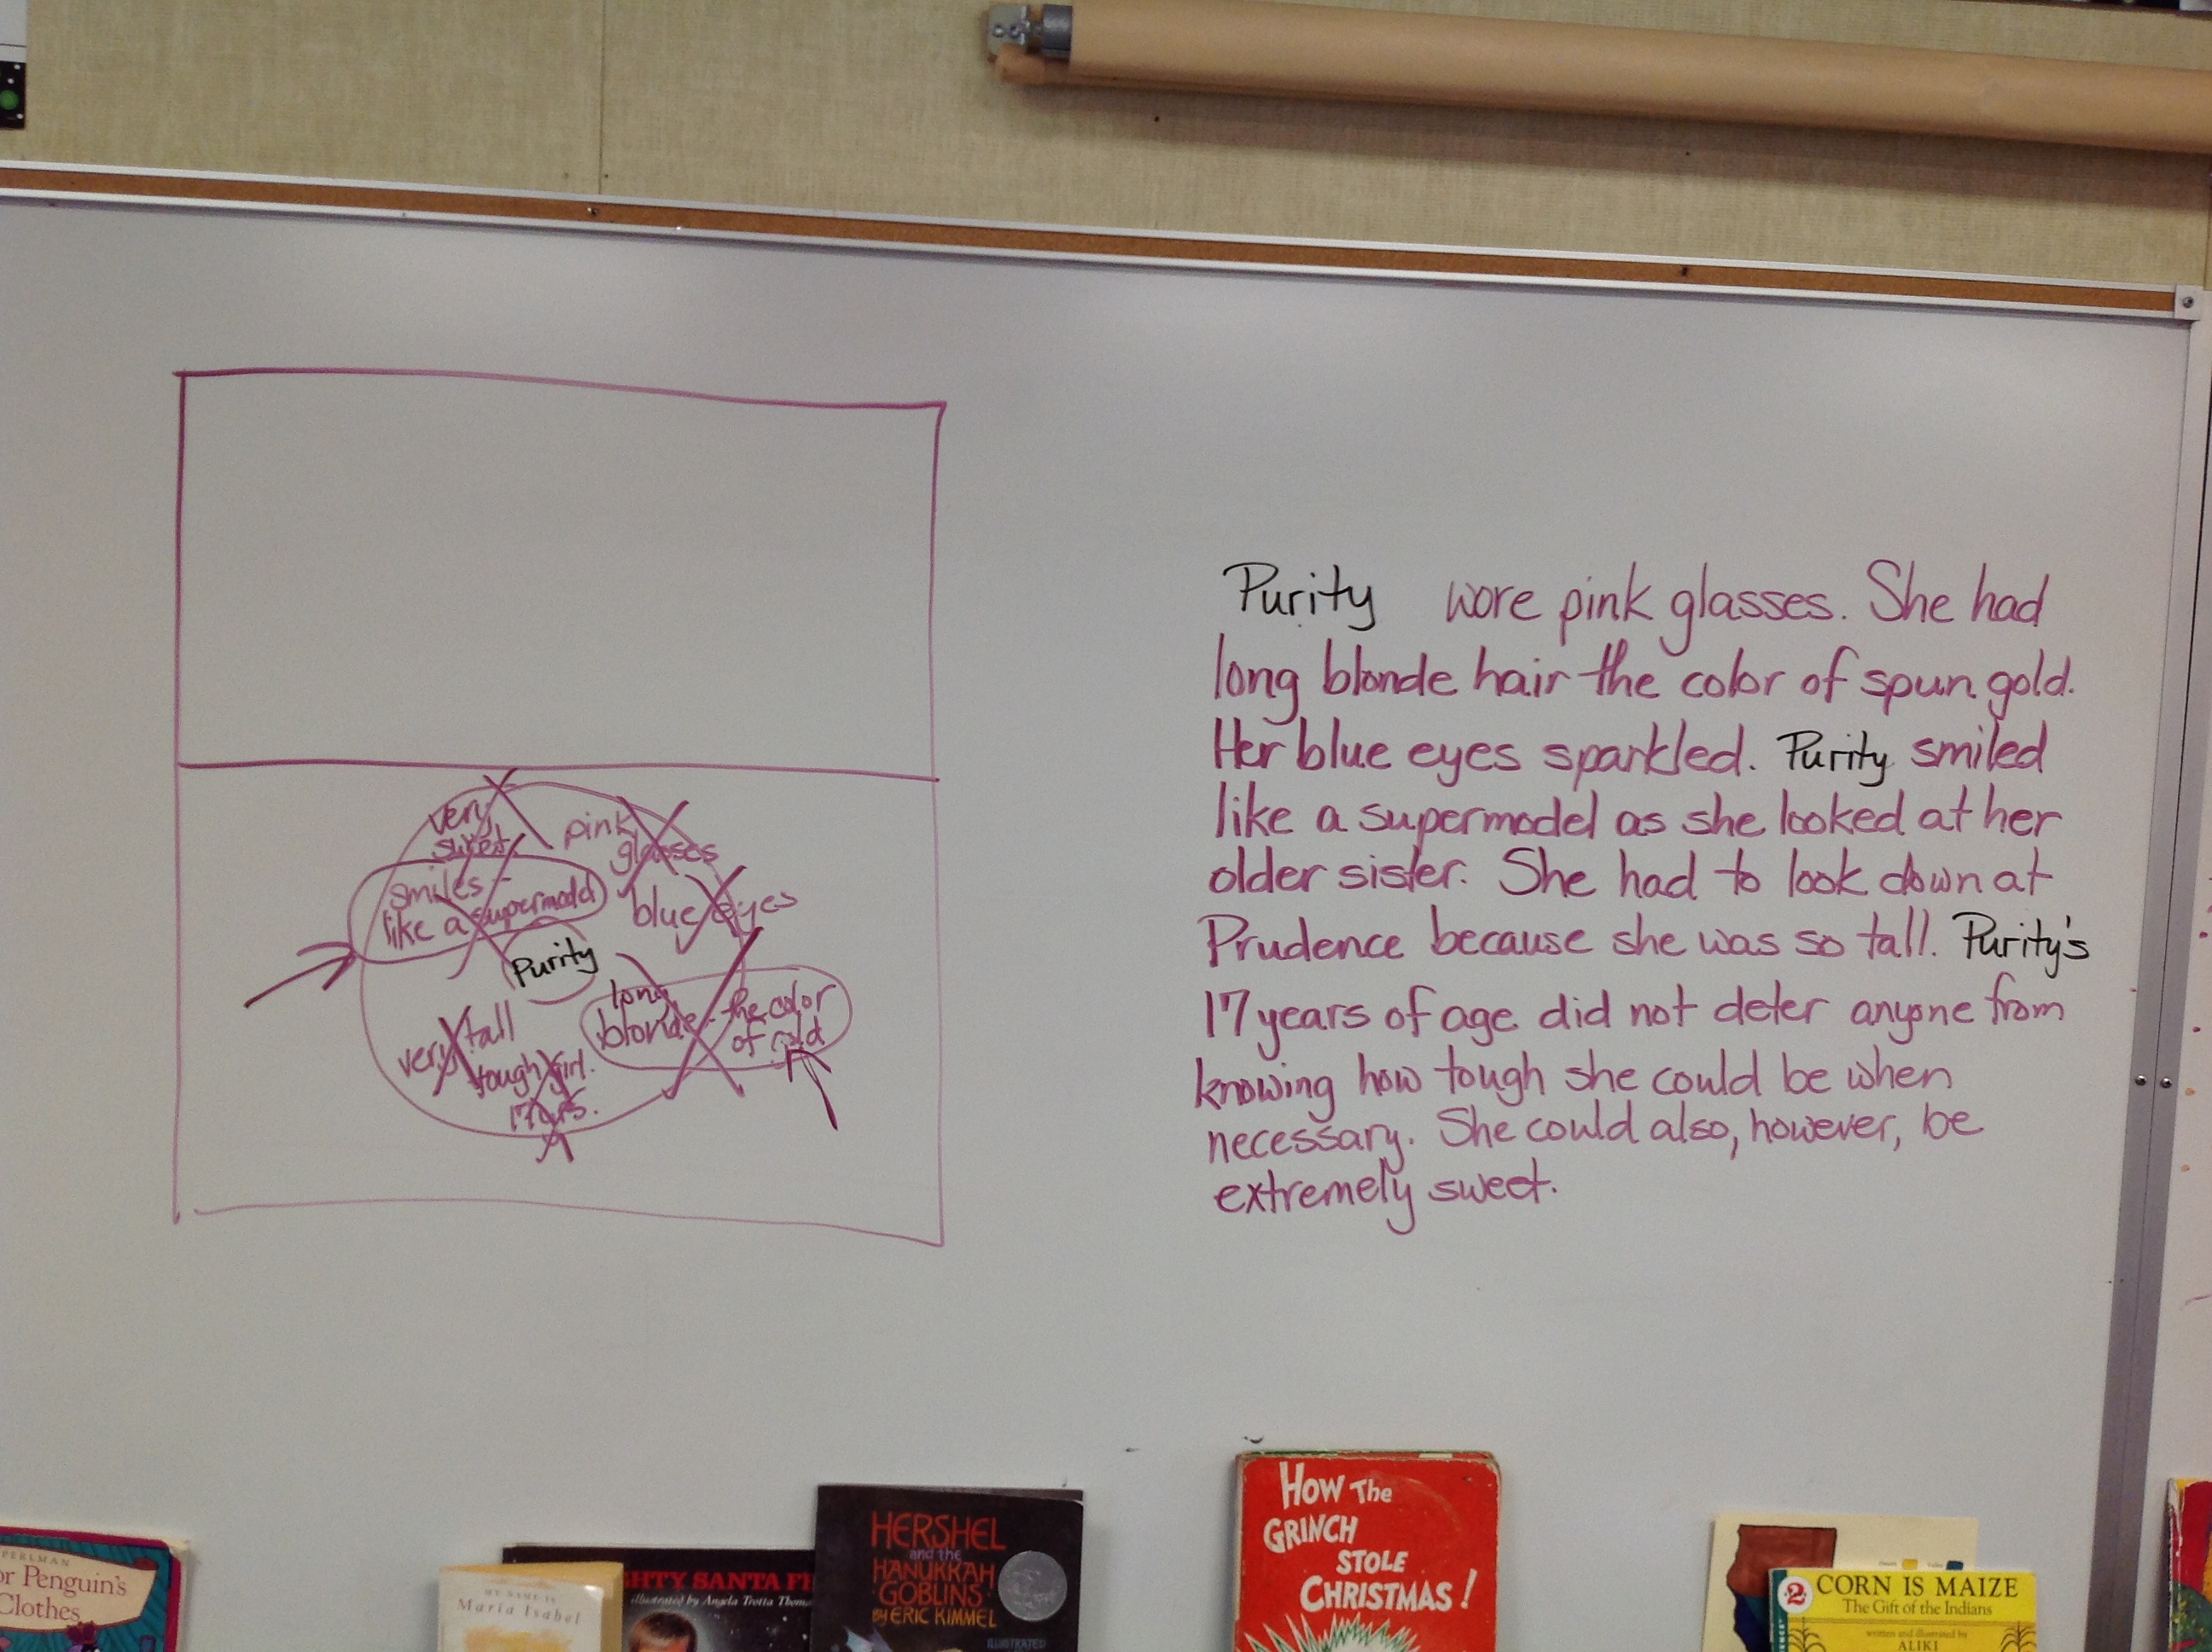 very
sweet
pink
glasses
smiles -
like a supermodel
blue eyes
Purity
long
blonde - the color
of gold
very tall
tough girl.
17 yrs.
Purity wore pink glasses. She had
long blonde hair the color of spun gold.
Her blue eyes sparkled. Purity smiled
like a supermodel as she looked at her
older sister. She had to look down at
Prudence because she was so tall. Purity's
17 years of age did not deter anyone from
knowing how tough she could be when
necessary. She could also, however, be
extremely sweet.
PERLMAN
Penguin's
Clothes
MY NAME IS
María Isabel
SANTA
illustrated by Angela Trotta
HERSHEL
and the
HANUKKAH
GOBLINS
BY ERIC KIMMEL
ILLUSTRATED
HOW THE
GRINCH
STOLE
CHRISTMAS!
2
CORN IS MAIZE
The Gift of the Indians
written and illustrated by
ALIKI